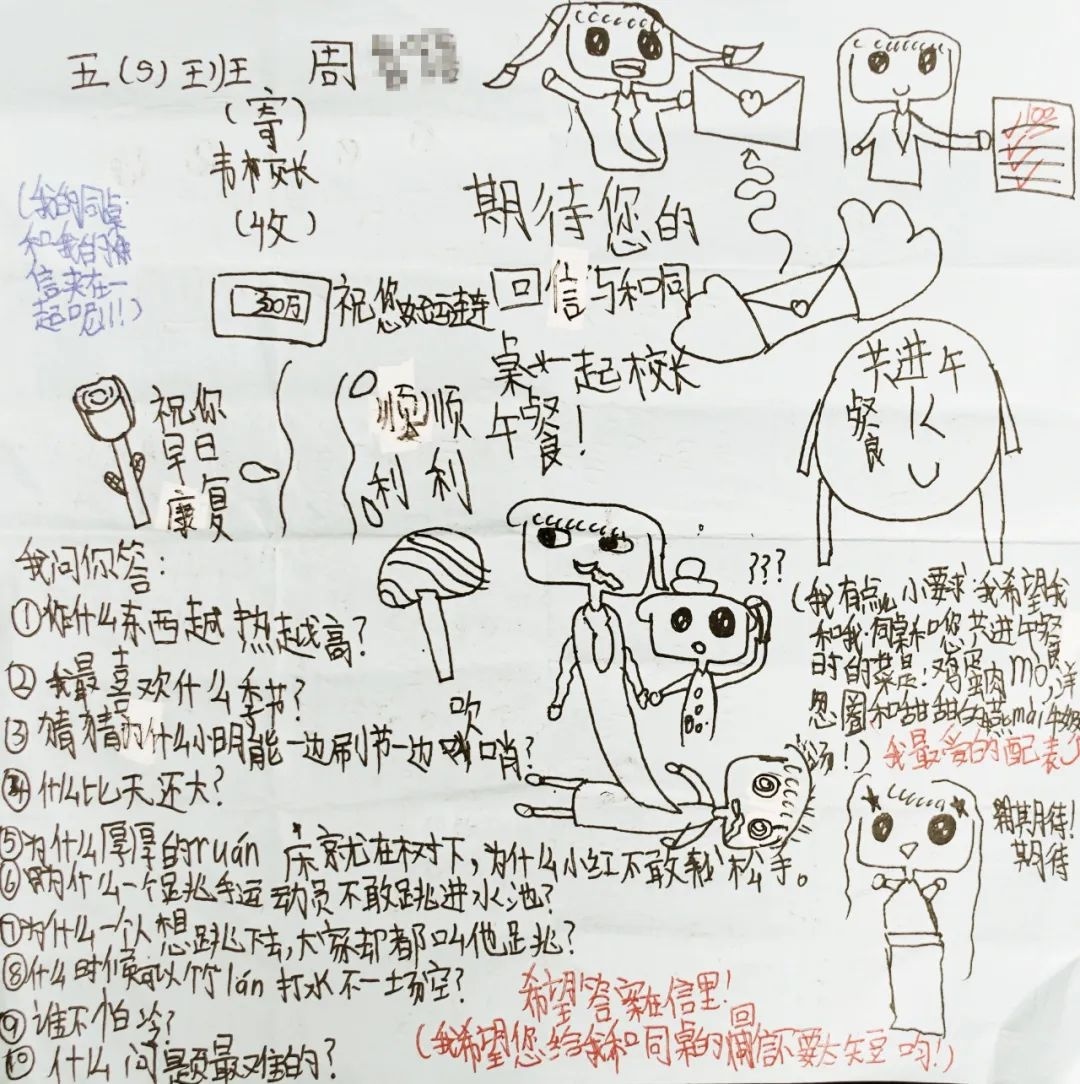 五(9)班 周
(寄)
韦校长
(收)
(我的同桌
和我的
信夹在一
起呢!!!)
100
期待您的
回信与和同
桌一起校长
午餐!
300万
祝您好运连连
祝你
早日
康复
顺顺
利利
共进午
餐
我问你答:
①什么东西越热越高?
②我最喜欢什么季节?
③猜猜为什么小明能一边刷节一边吹哨?
④什么比天还大?
⑤为什么厚厚的ruán床就在树下,为什么小红不敢松手。
⑥为什么一个跳水运动员不敢跳进水池?
⑦为什么一个人想跳下去,大家却都叫他跳?
⑧什么时候可以竹lán打水不一场空?
⑨谁不怕冷?
⑩什么问题最难的?
???
(我有点小要求:我希望我
和我同桌和您共进午餐
时的菜是:鸡蛋肉mo,洋
葱圈和甜甜的燕mài牛奶
汤!)
我最爱的配表
期待!
期待
希望答案在信里!
(我希望您给我和同桌的回信不要太短哟!)